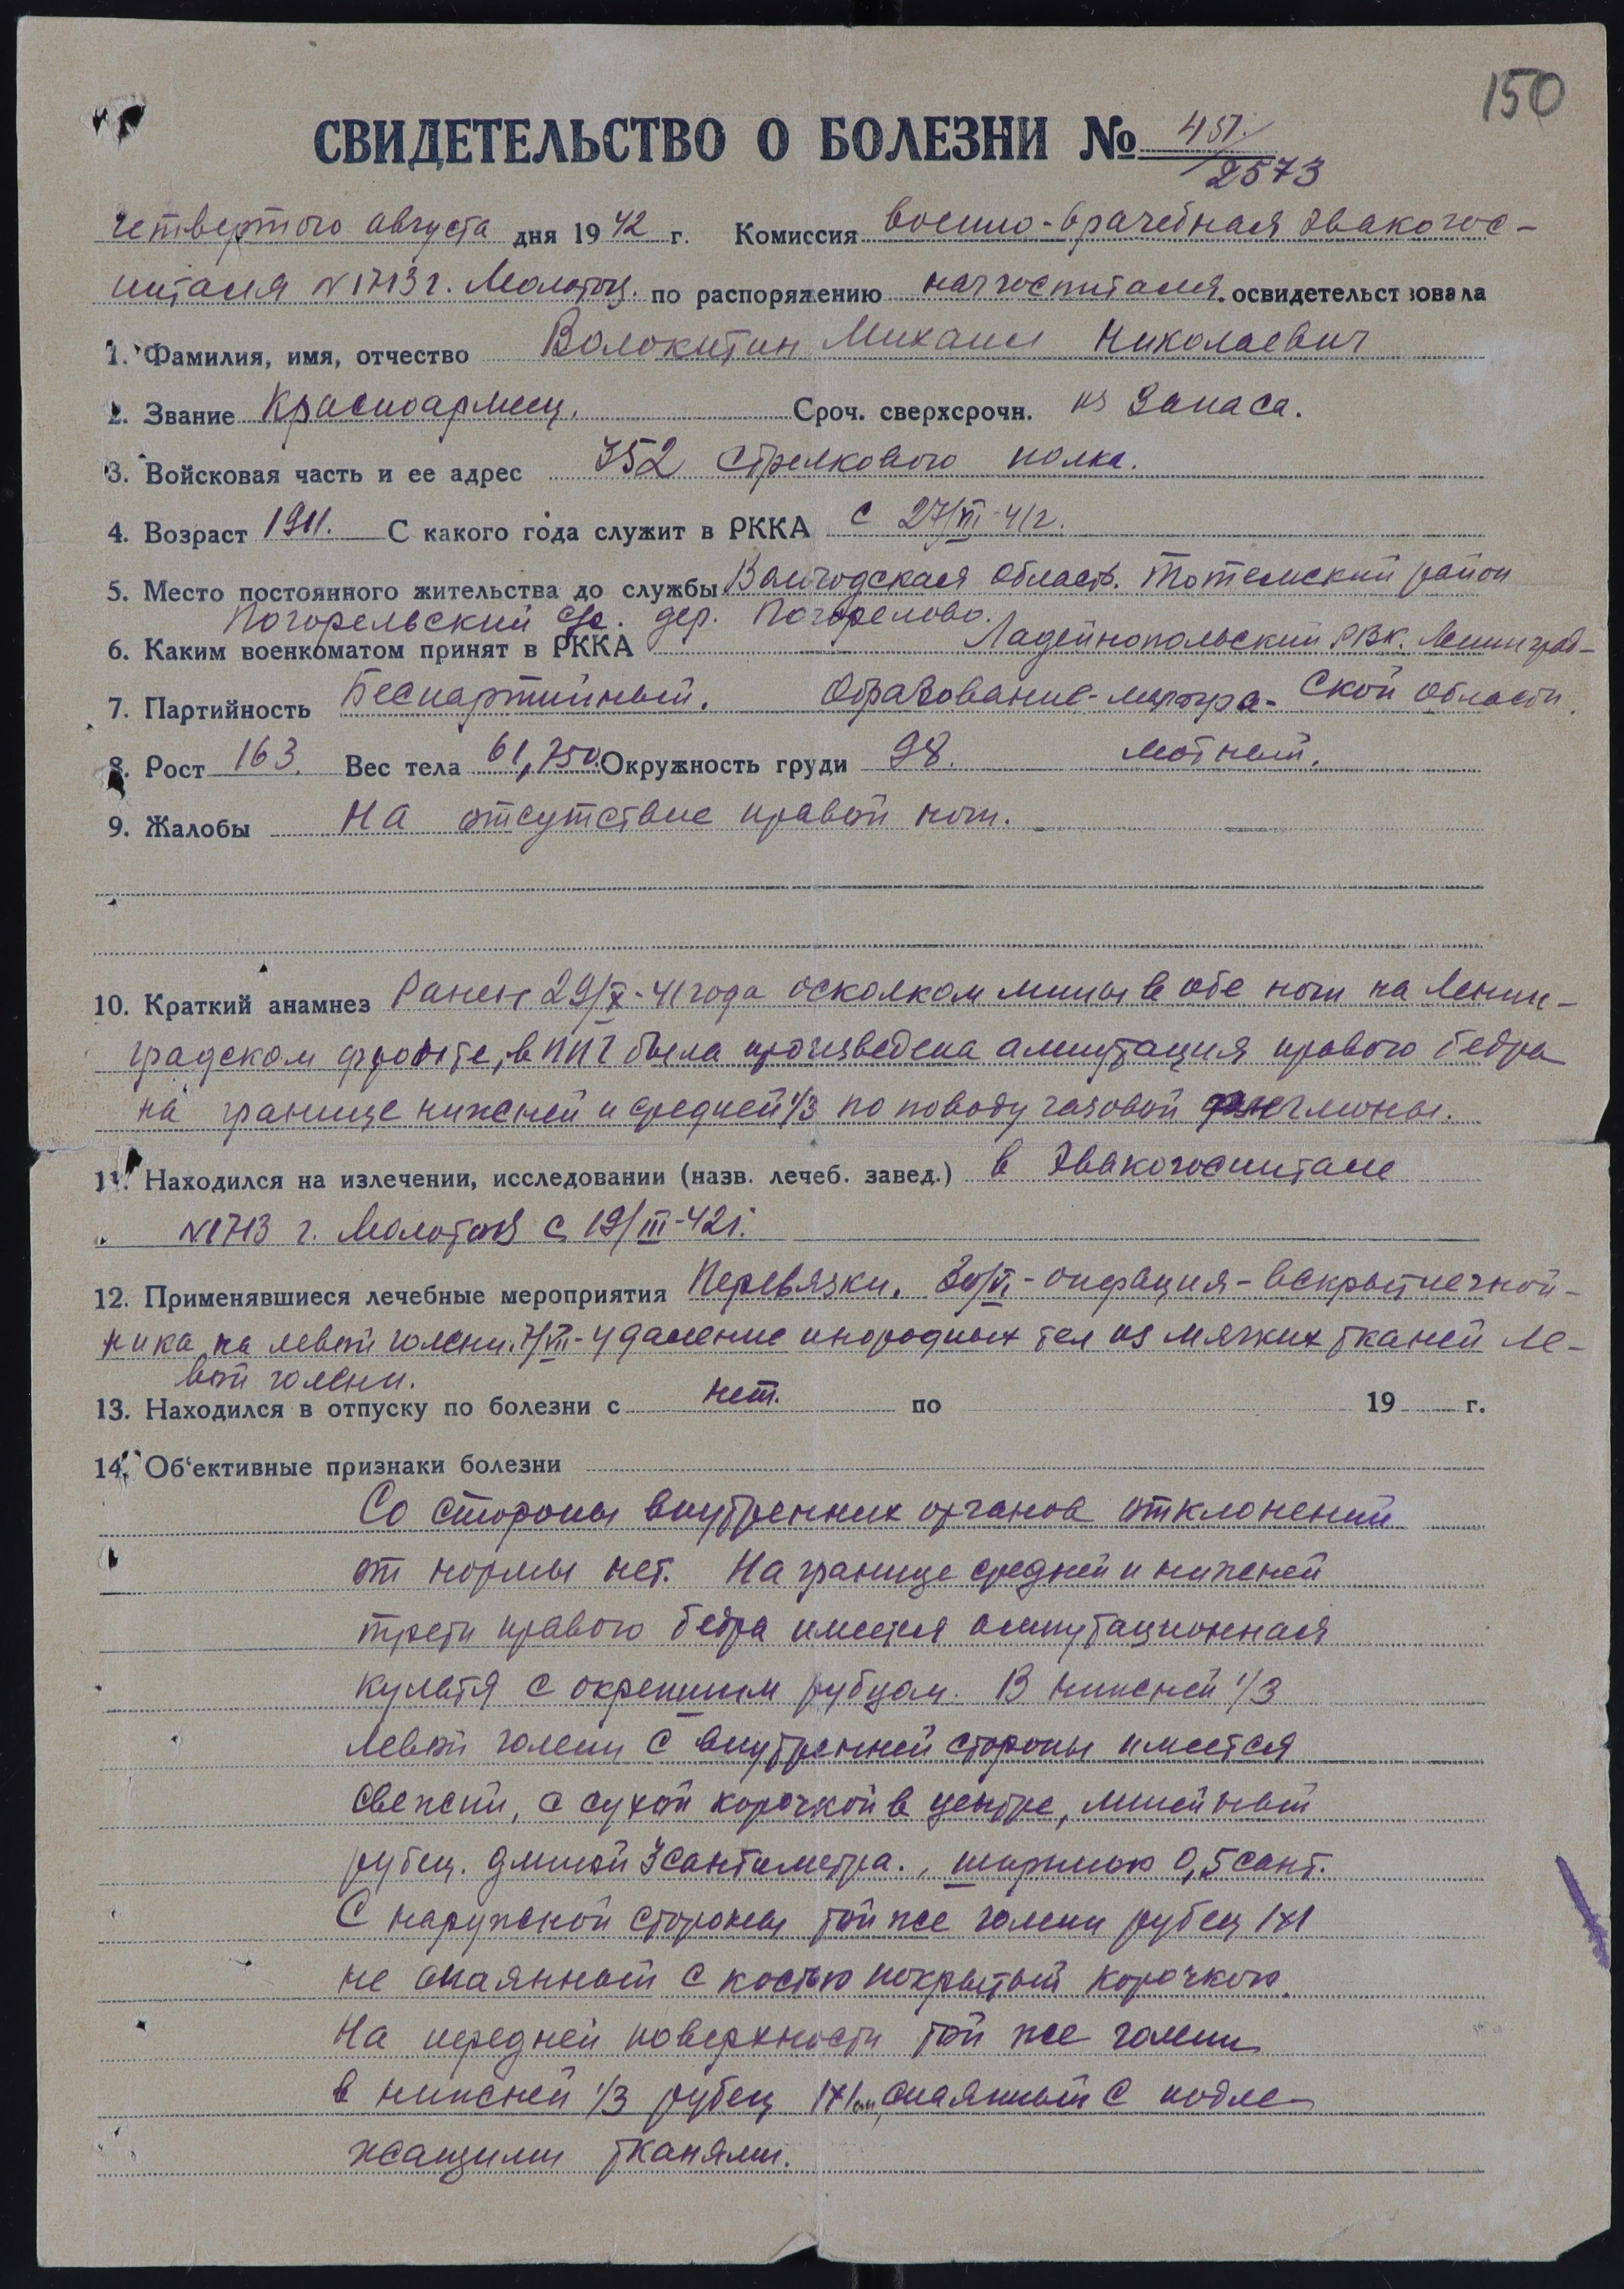 150
СВИДЕТЕЛЬСТВО О БОЛЕЗНИ № 451/
2573
четвертого августа дня 1942 г. Комиссия военно-врачебная эвакогос-
питаля №1713 г. Молотов. по распоряжению начгоспиталя. освидетельствовала
1. Фамилия, имя, отчество Волокитин Михаил Николаевич
2. Звание Красноармеец. Сроч. сверхсрочн. из запаса.
3. Войсковая часть и ее адрес 352 стрелкового полка.
4. Возраст 1911. С какого года служит в РККА с 27/VII-41г.
5. Место постоянного жительства до службы Вологодская область. Тотемский район
Погорельский с/с. дер. Погорелово.
6. Каким военкоматом принят в РККА Ладейнопольский РВК. Ленинград-
7. Партийность Беспартийный. Образование-малогра- ской области.
8. Рост 163. Вес тела 61,750. Окружность груди 98. мотный.
9. Жалобы На отсутствие правой ноги.
10. Краткий анамнез Ранен 29/X-41 года осколком мины в обе ноги на Ленин-
градском фронте, в ППГ была произведена ампутация правого бедра
на границе нижней и средней 1/3 по поводу газовой флегмоны.
11. Находился на излечении, исследовании (назв. лечеб. завед.) в эвакогоспитале
№1713 г. Молотов с 19/III-42г.
12. Применявшиеся лечебные мероприятия Перевязки. 30/VI-операция-вскрытие гной-
ника на левой голени. 7/VII-удаление инородных тел из мягких тканей ле-
вой голени.
13. Находился в отпуску по болезни с нет. по 19 г.
14. Об‘ективные признаки болезни
Со стороны внутренних органов отклонений
от нормы нет. На границе средней и нижней
трети правого бедра имеется ампутационная
культя с окрепшим рубцом. В нижней 1/3
левой голени с внутренней стороны имеется
свежий, с сухой корочкой в центре, линейный
рубец. длиной 3 сантиметра., шириною 0,5 сант.
С наружной стороны той же голени рубец 1х1
не спаянный с костью покрытый корочкою.
На передней поверхности той же голени
в нижней 1/3 рубец 1х1см, спаянный с подле-
жащими тканями.